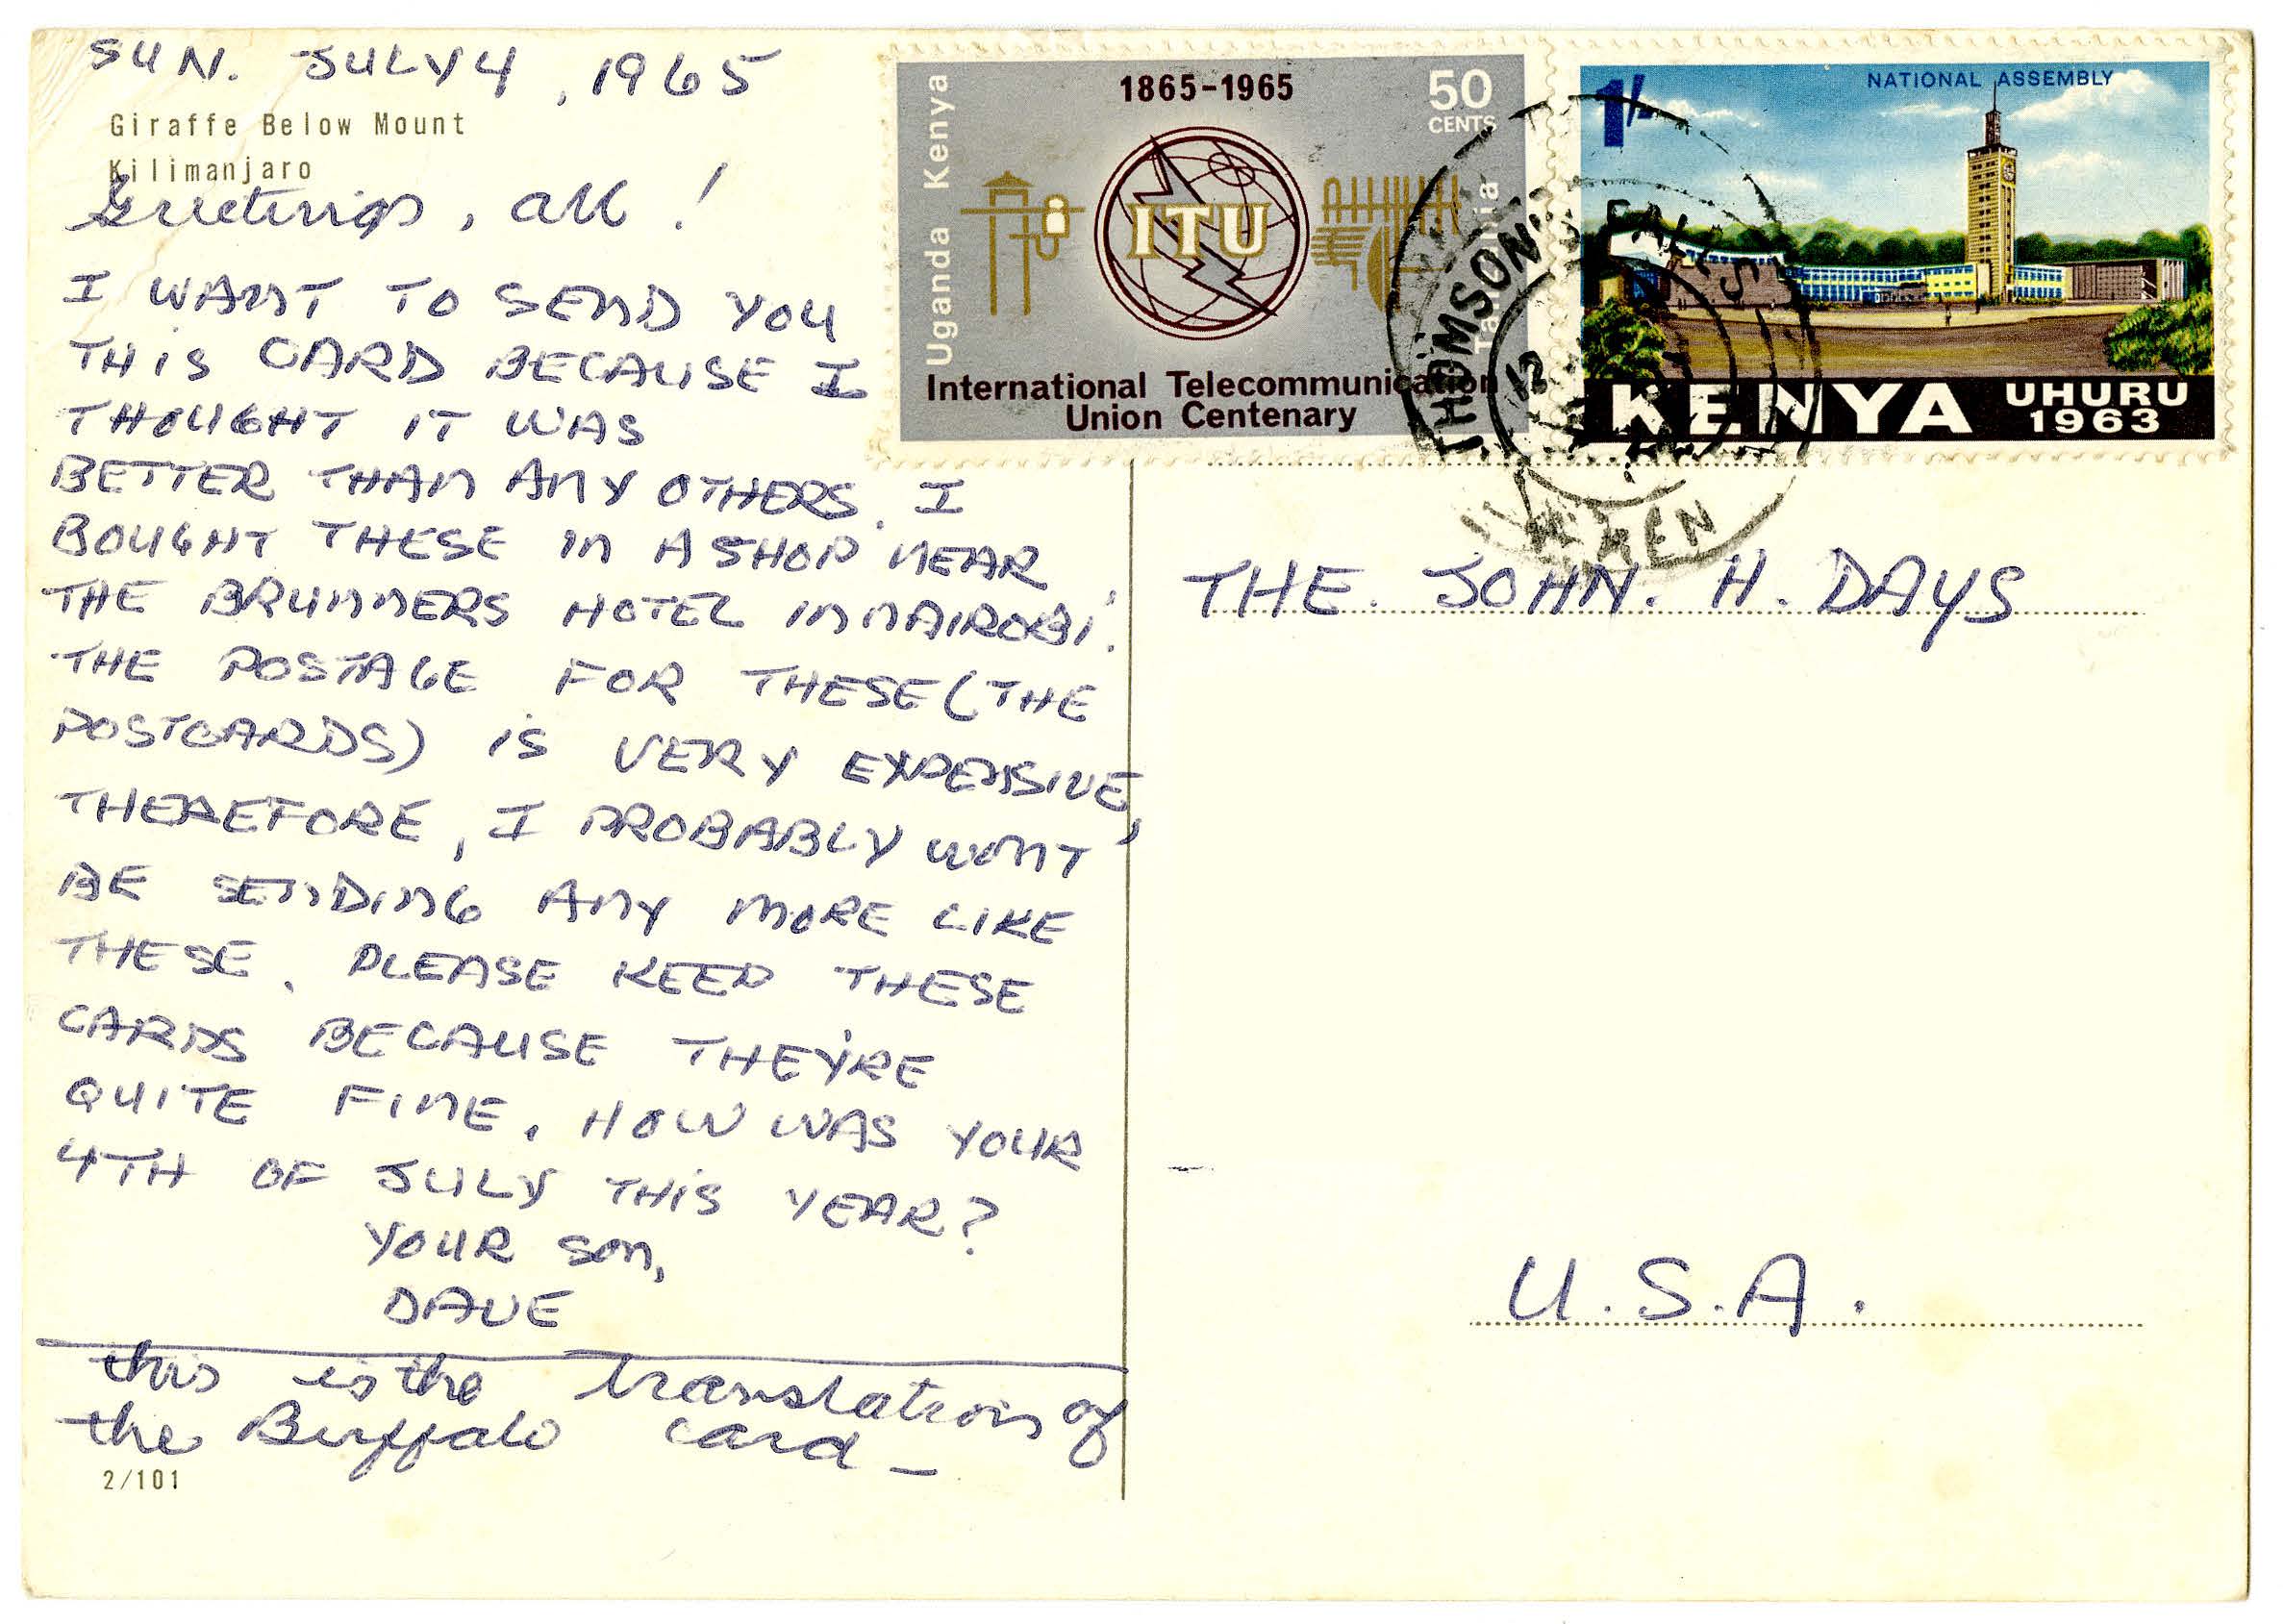 SUN. JULY 4, 1965
Giraffe Below Mount
Kilimanjaro
Greetings, all!
I WANT TO SEND YOU
THIS CARD BECAUSE I
THOUGHT IT WAS
BETTER THAN ANY OTHERS. I
BOUGHT THESE IN A SHOP NEAR
THE BRUNNERS HOTEL IN NAIROBI.
THE POSTAGE FOR THESE (THE
POSTCARDS) IS VERY EXPENSIVE,
THEREFORE, I PROBABLY WON'T
BE SENDING ANY MORE LIKE
THESE. PLEASE KEEP THESE
CARDS BECAUSE THEY'RE
QUITE FINE. HOW WAS YOUR
4TH OF JULY THIS YEAR?
YOUR SON,
DAVE
this is the translation of
the Buffalo card —
2/101
Uganda Kenya
1865-1965
50
CENTS
ITU
Tanzania
International Telecommunication
Union Centenary
1/-
NATIONAL ASSEMBLY
KENYA
UHURU
1963
THOMSON'S FALLS
12
KEN
THE JOHN. H. DAYS
U.S.A.